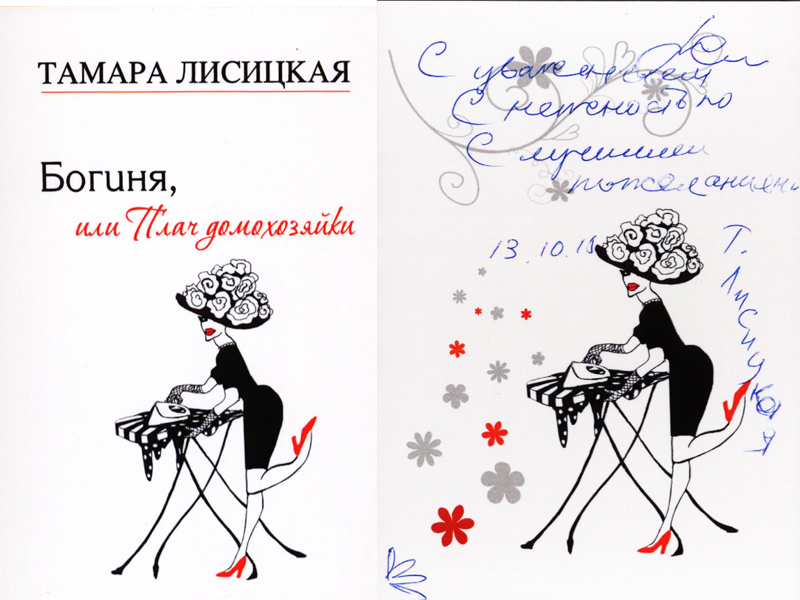 ТАМАРА ЛИСИЦКАЯ
Богиня,
или Плач домохозяйки
С уважением
С нежностью
С лучшими
пожеланиями
13.10.15
Т. Лисицкая